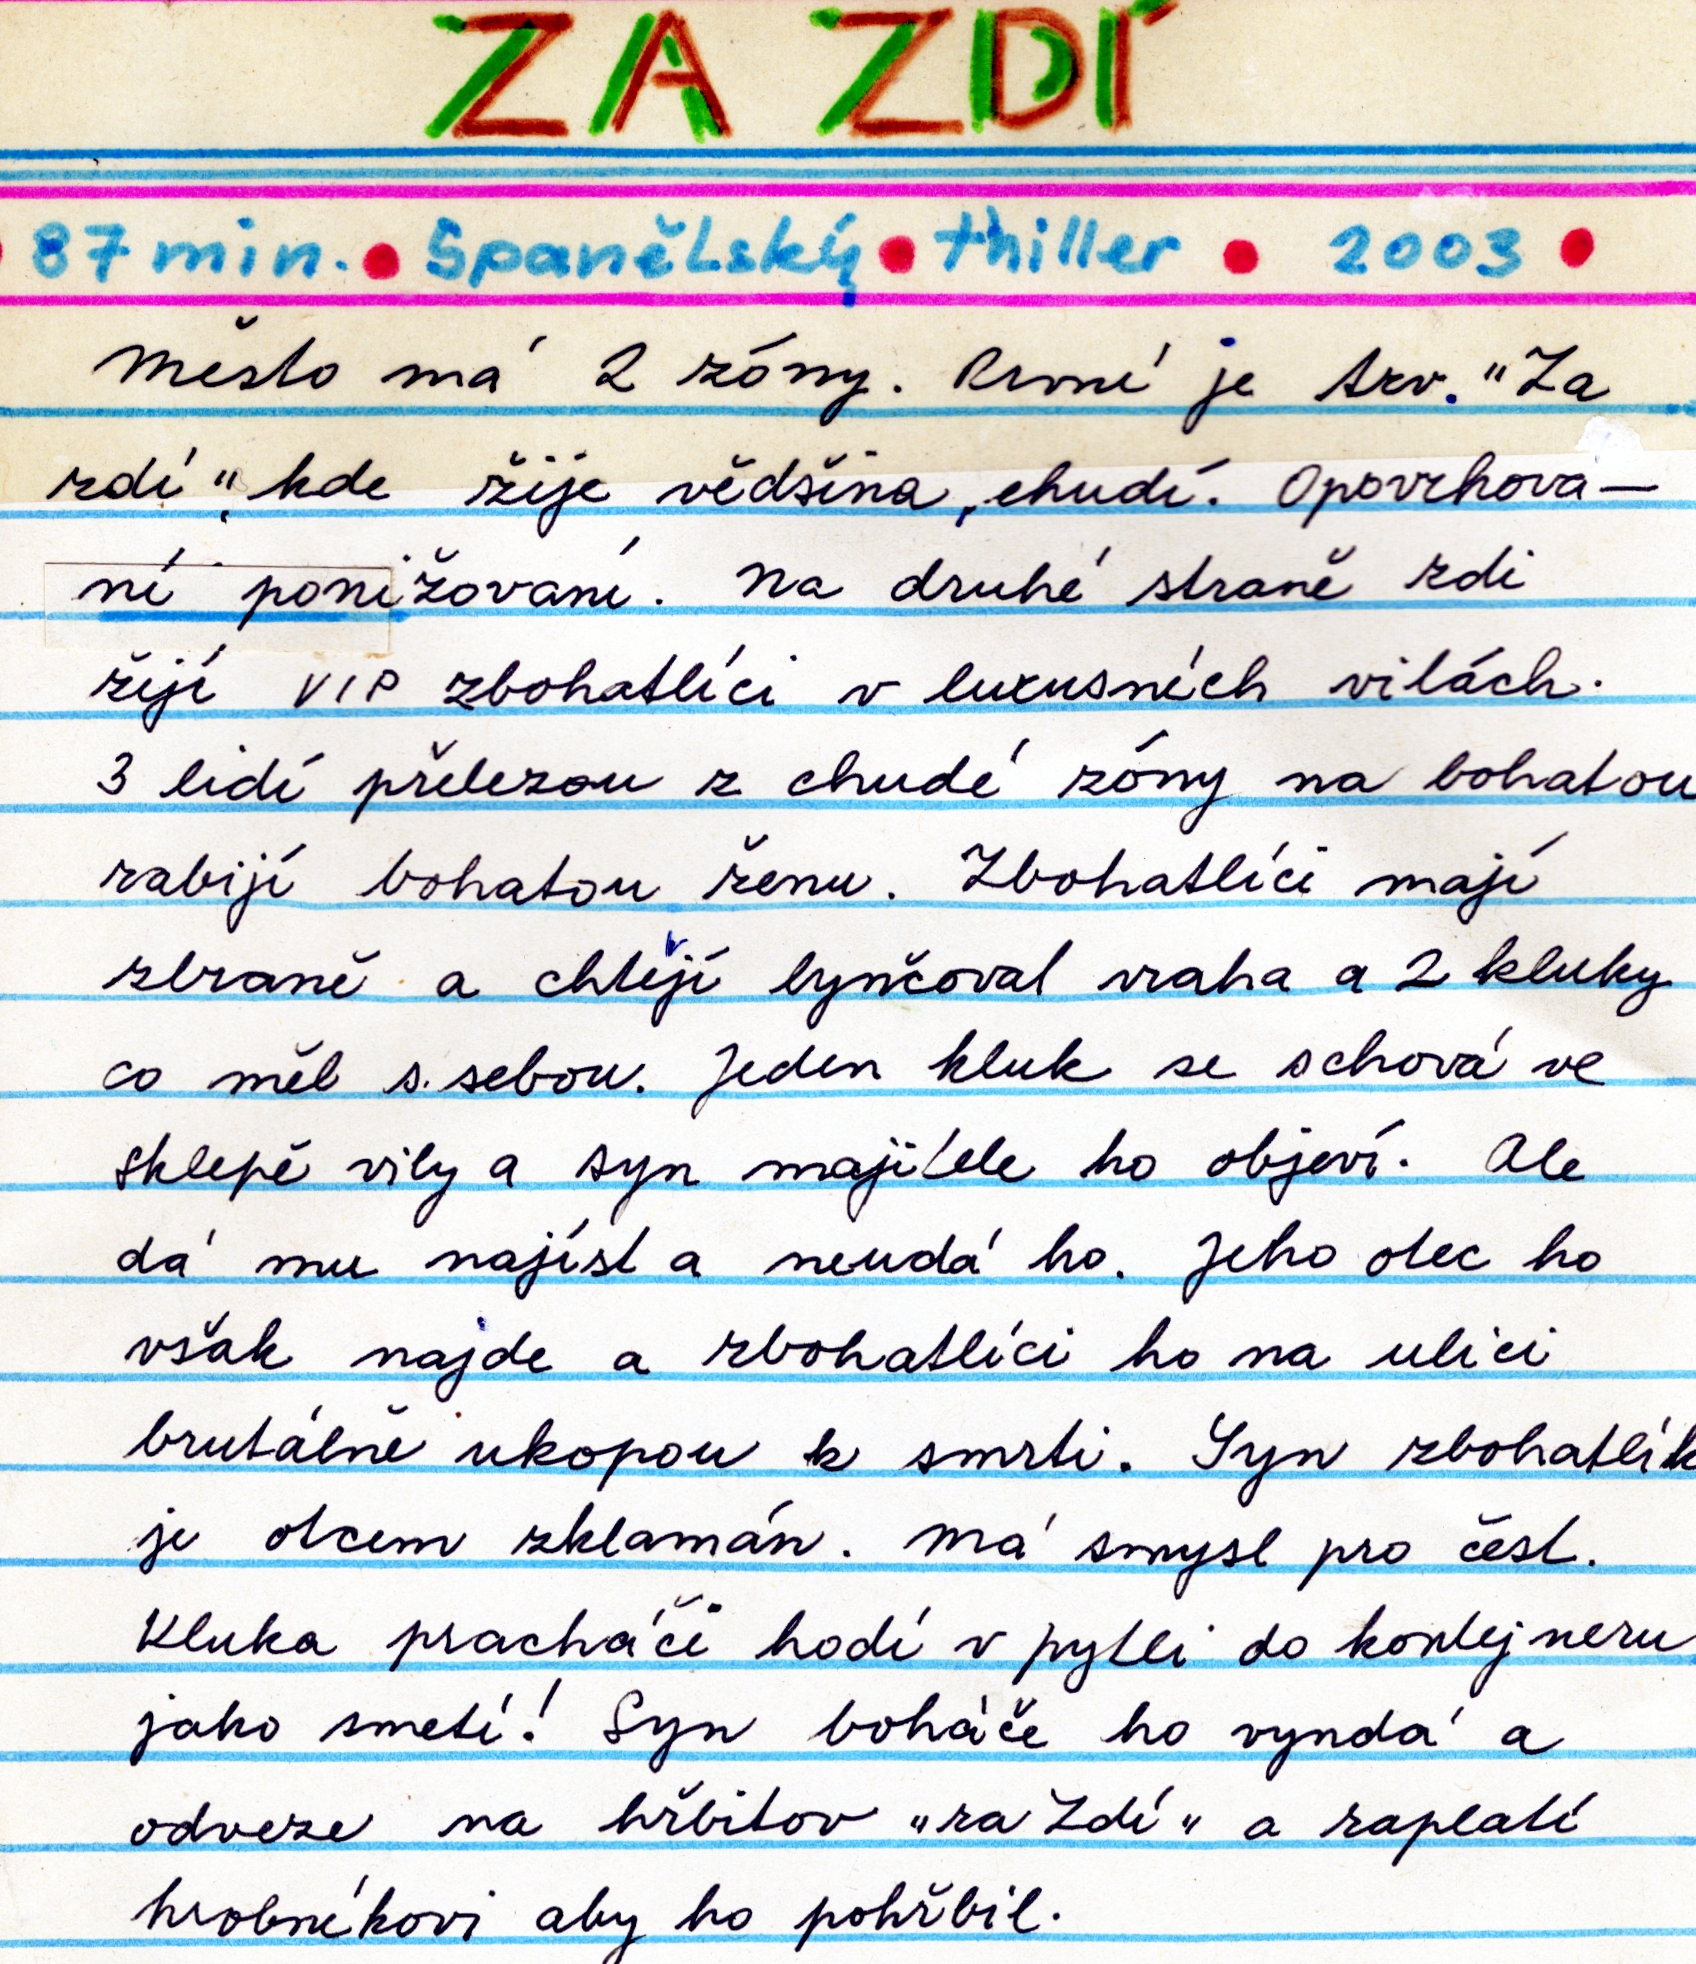 ZA ZDÍ
87 min. • Spanělský • thiller • 2003 •
Město má 2 zóny. První je tzv. "Za
zdí", kde žije vědšina, chudí. Opovrhova—
ní ponižovaní. Na druhé straně zdi
žijí VIP zbohatlíci v luxusních vilách.
3 lidí přelezou z chudé zóny na bohatou
zabijí bohatou ženu. Zbohatlíci mají
zbraně a chtějí lynčovat vraha a 2 kluky
co měl s sebou. Jeden kluk se schová ve
sklepě vily a syn majitele ho objeví. Ale
dá mu najíst a neudá ho. Jeho otec ho
však najde a zbohatlíci ho na ulici
brutálně ukopou k smrti. Syn zbohatlík
je otcem zklamán. Má smysl pro čest.
Kluka pracháči hodí v pytli do kontejneru
jako smetí! Syn boháče ho vyndá a
odveze na hřbitov "za Zdí" a zaplatí
hrobníkovi aby ho pohřbil.